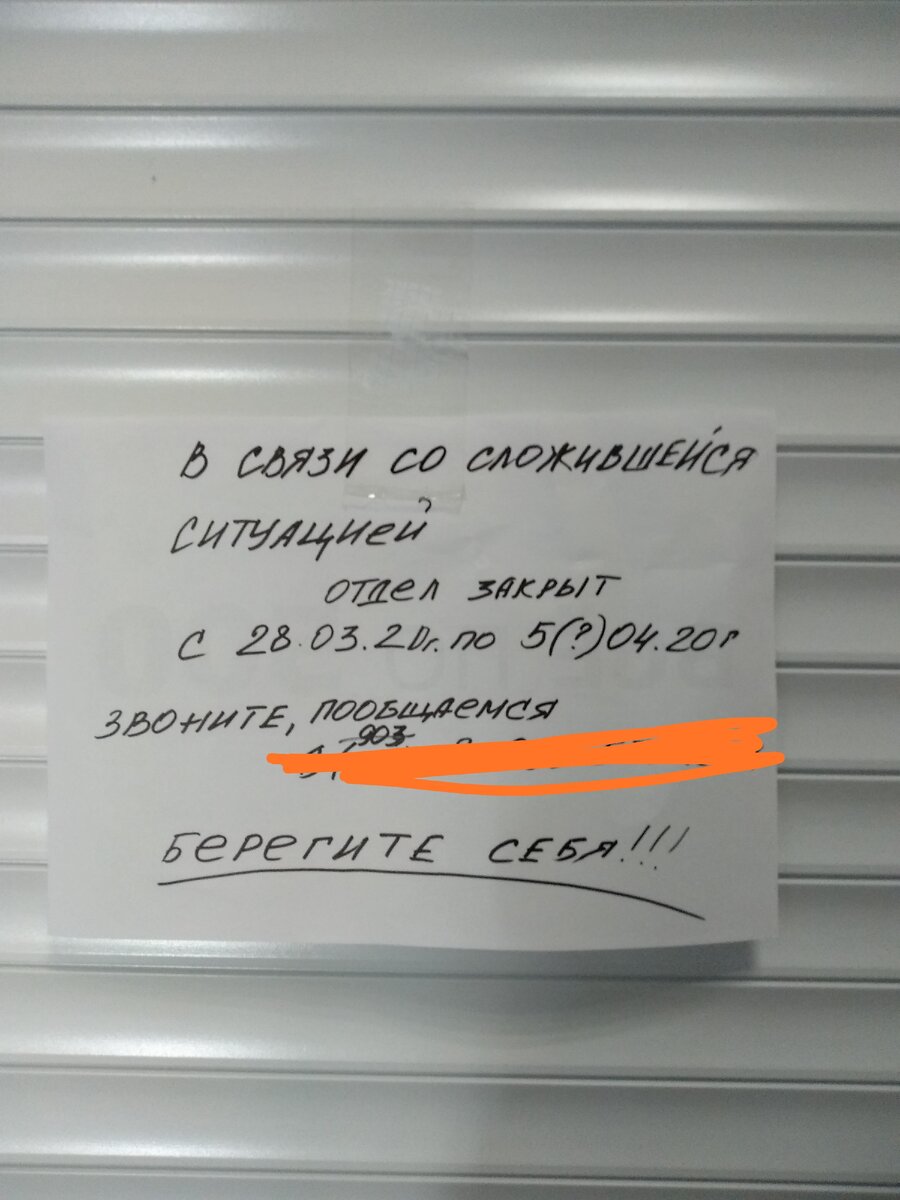 В СВЯЗИ СО СЛОЖИВШЕЙСЯ
СИТУАЦИЕЙ
ОТДЕЛ ЗАКРЫТ
С 28.03.20г. по 5(?)04.20г
ЗВОНИТЕ, ПООБЩАЕМСЯ
903
БЕРЕГИТЕ СЕБЯ!!!